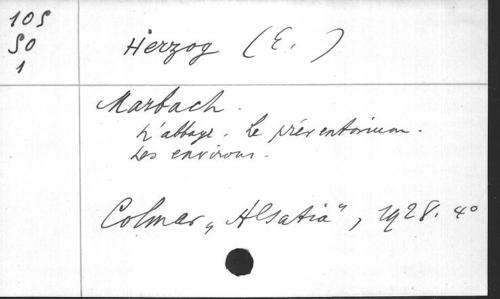 105
50
1
Herzog (E.)
Marbach.
L'abbaye. Le préventorium.
Les environs.
Colmar „Alsatia", 1928. 4°